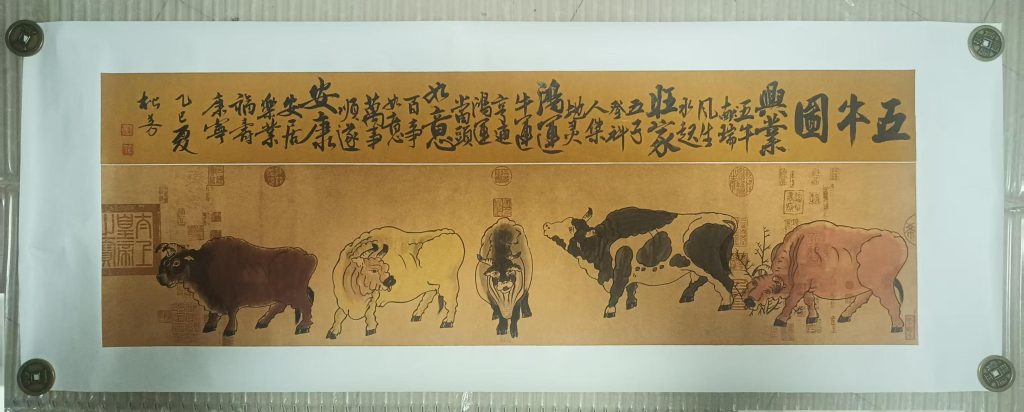 五牛圖
興業
五牛
献瑞
风生
水起
旺家
五子
登科
人杰
地灵
鴻運
牛運
亨通
鴻運
當頭
如意
百事
如意
萬事
順遂
安康
安居
樂業
福壽
康寧
乙巳夏
松芳